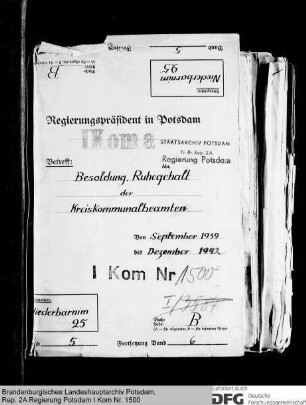 5
B
Niederbarnim
25
Regierungspräsident in Potsdam
I Kom a
STAATSARCHIV POTSDAM
Pr. Br. Rep. 2A
Regierung Potsdam
Abt.
Betreff:
Besoldung, Ruhegehalt
der
Kreiskommunalbeamten
Von September 1939
bis Dezember 1942
I Kom Nr. 1500
Niederbarnim
25
B
5
Fortsetzung Band 6
Brandenburgisches Landeshauptarchiv Potsdam,
Rep. 2A Regierung Potsdam I Kom Nr. 1500
Gefördert durch
DFG
Deutsche
Forschungsgemeinschaft